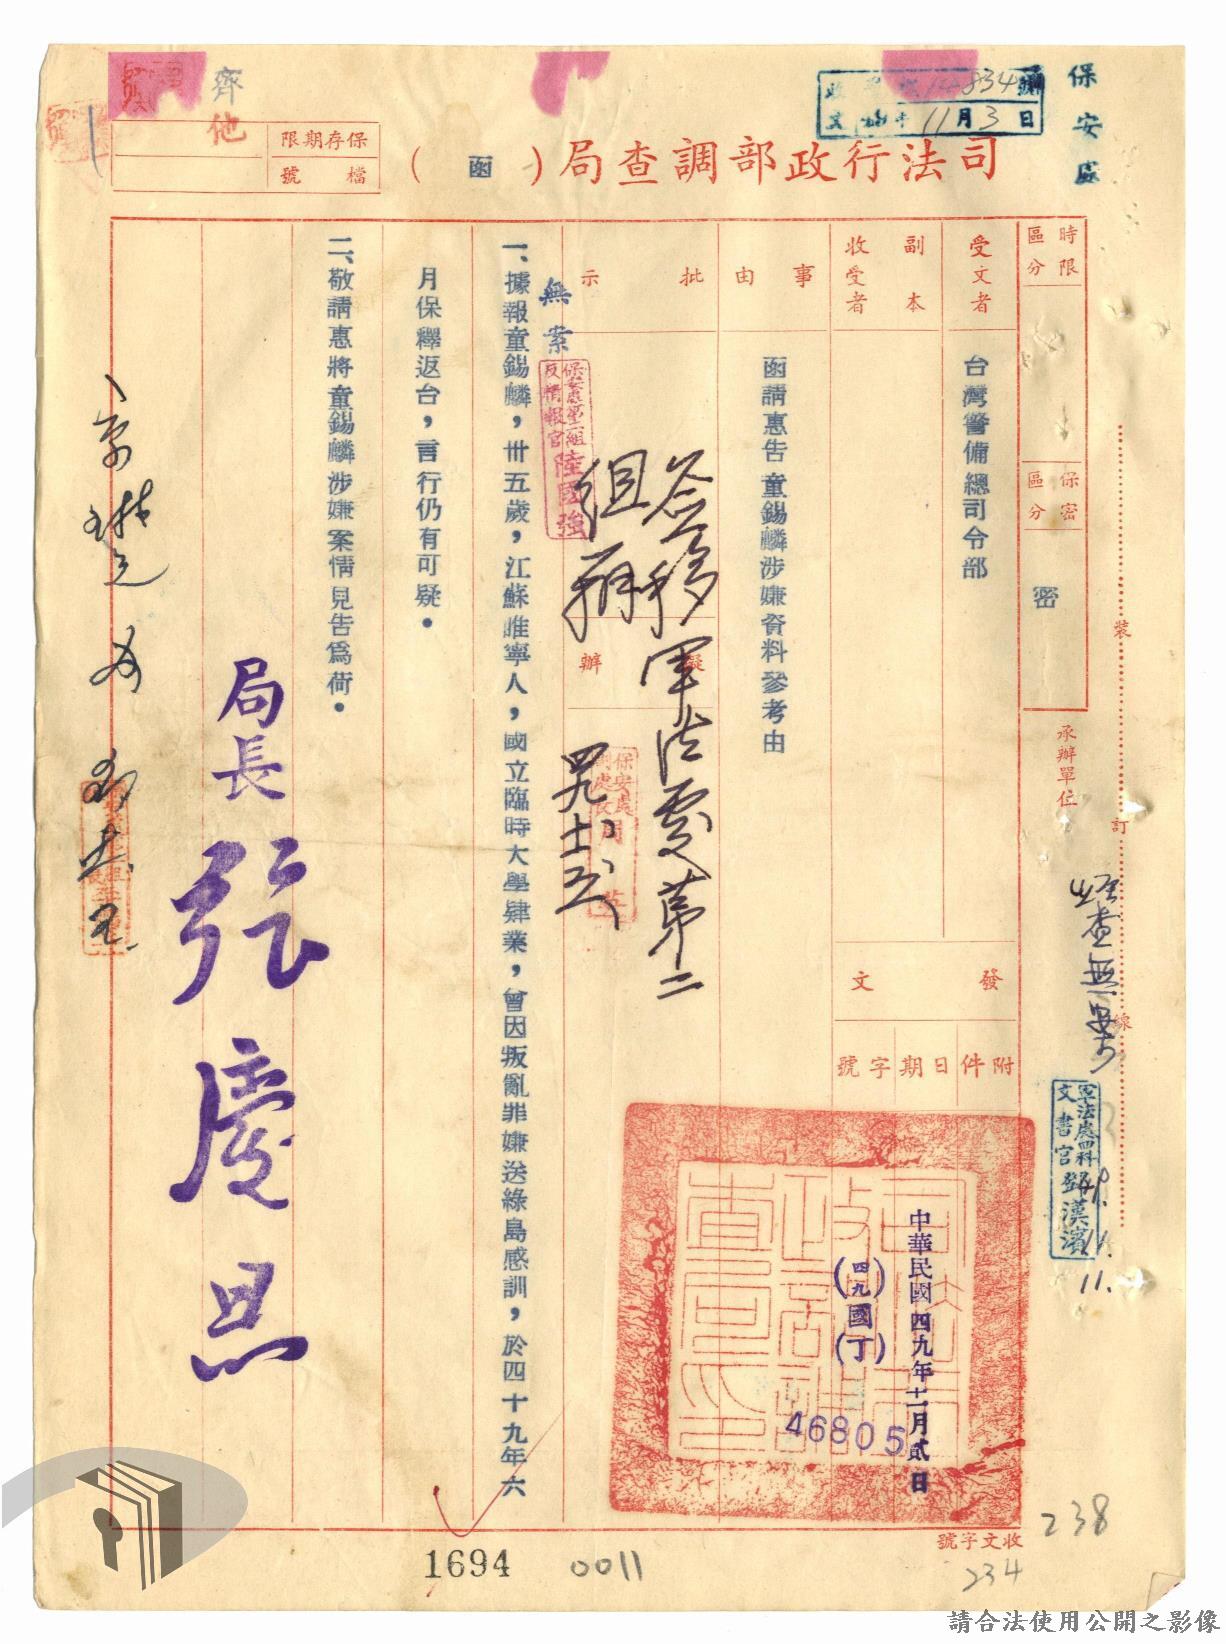 保安處
收文 字第14834號
11月3日
司法行政部調查局(函)
保存期限
檔號
齊他
時限區分
保密區分
密
承辦單位
裝
訂
線
受文者
台灣警備總司令部
副本收受者
發文
附件
日期
字號
中華民國四九年十一月貳日
(四九)國(丁)
46805
事由
函請惠告童錫麟涉嫌資料參考由
批示
擬辦
簽移軍法處第二
組辦
無案
保安處第一組
反情報官陸國強
一、據報童錫麟,卅五歲,江蘇睢寧人,國立臨時大學肄業,曾因叛亂罪嫌送綠島感訓,於四十九年六
月保釋返台,言行仍有可疑。
二、敬請惠將童錫麟涉嫌案情見告為荷。
局長 張慶恩
經查無案
軍法處四科
文書官鄧漢濱
11.
收文字號
238
234
1694
0011
請合法使用公開之影像